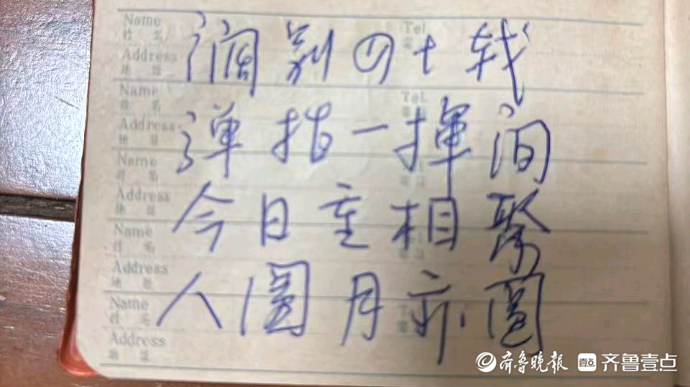 Name
姓名
Tel.
Address
地址
阔别四十载
Name
姓名
Tel.
Address
地址
弹指一挥间
Name
姓名
Address
地址
今日重相聚
Name
姓名
Address
地址
人圆月亦圆
Name
姓名
Address
地址
齐鲁晚报 齐鲁壹点